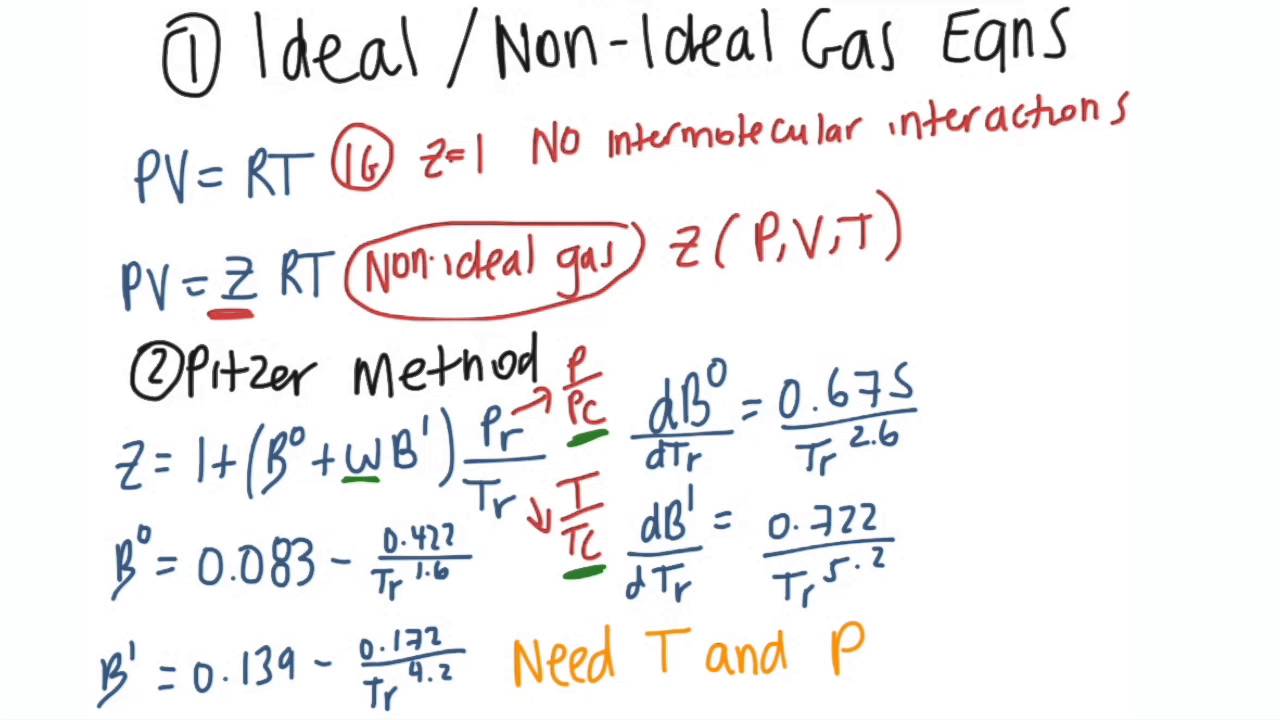 ① Ideal / Non-Ideal Gas Eqns
PV = RT IG Z=1 No intermolecular interactions
PV = Z RT Non-ideal gas Z(P,V,T)
② Pitzer Method
Z = 1+(B⁰ + ωB¹) Pr/Tr
P/Pc
T/Tc
dB⁰/dTr = 0.675/Tr^2.6
B⁰ = 0.083 - 0.422/Tr^1.6
dB¹/dTr = 0.722/Tr^5.2
B¹ = 0.139 - 0.172/Tr^4.2
Need T and P